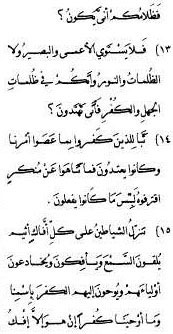 فظلامكم أنى يكون؟
(١٣) فلا يستوي الأعمى والبصر ولا
الظلمات والنور وإنكم في ظلمات
الجهل والكفر فأنى تهتدون؟
(١٤) تبا للذين كفروا بما عصوا أمرنا
وكانوا يعتدون فما تناهوا عن منكر
اقترفوه لبئس ما كانوا يفعلون.
(١٥) تتنزل الشياطين على كل أفاك أثيم
يلقون السمع ويأفكون ويخادعون
أولياءهم ويوحون إليهم الكفر بإسمنا
وما أوحينا كفرا إن هو إلا إفك